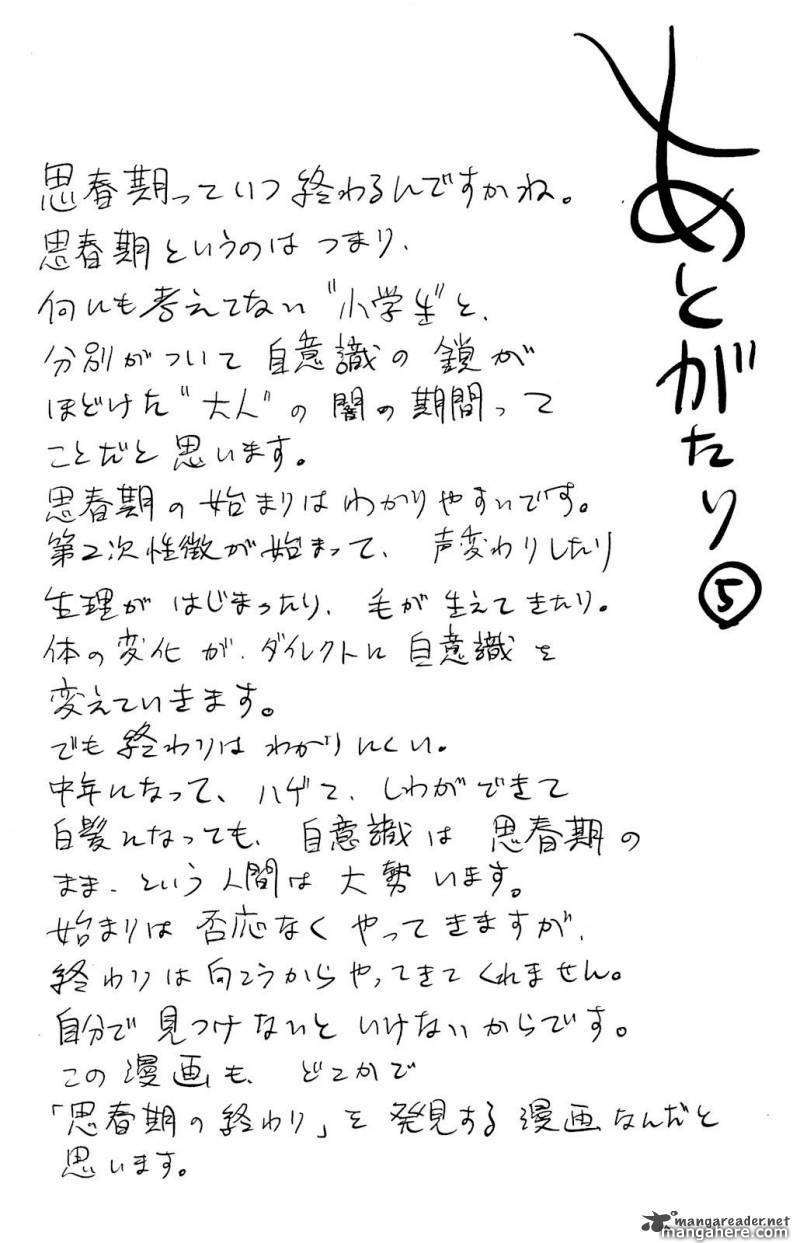 あとがたり⑤
思春期っていつ終わるんですかね。
思春期というのは つまり、
何にも考えてない"小学生"と、
分別がついて 自意識の鎖が
ほどけた"大人"の 闇の期間って
ことだと 思います。
思春期の始まりは わかりやすいです。
第2次性徴が始まって、声変わりしたり
生理が はじまったり、毛が 生えてきたり。
体の変化が、ダイレクトに 自意識を
変えていきます。
でも 終わりは わかりにくい。
中年になって、ハゲて、しわができて
白髪になっても、自意識は 思春期の
まま、という 人間は 大勢 います。
始まりは 否応なく やってきますが、
終わりは向こうからやってきてくれません。
自分で 見つけないと いけないからです。
この漫画も、どこかで
「思春期の終わり」を 発見する 漫画なんだと
思います。
mangareader.net
mangahere.com